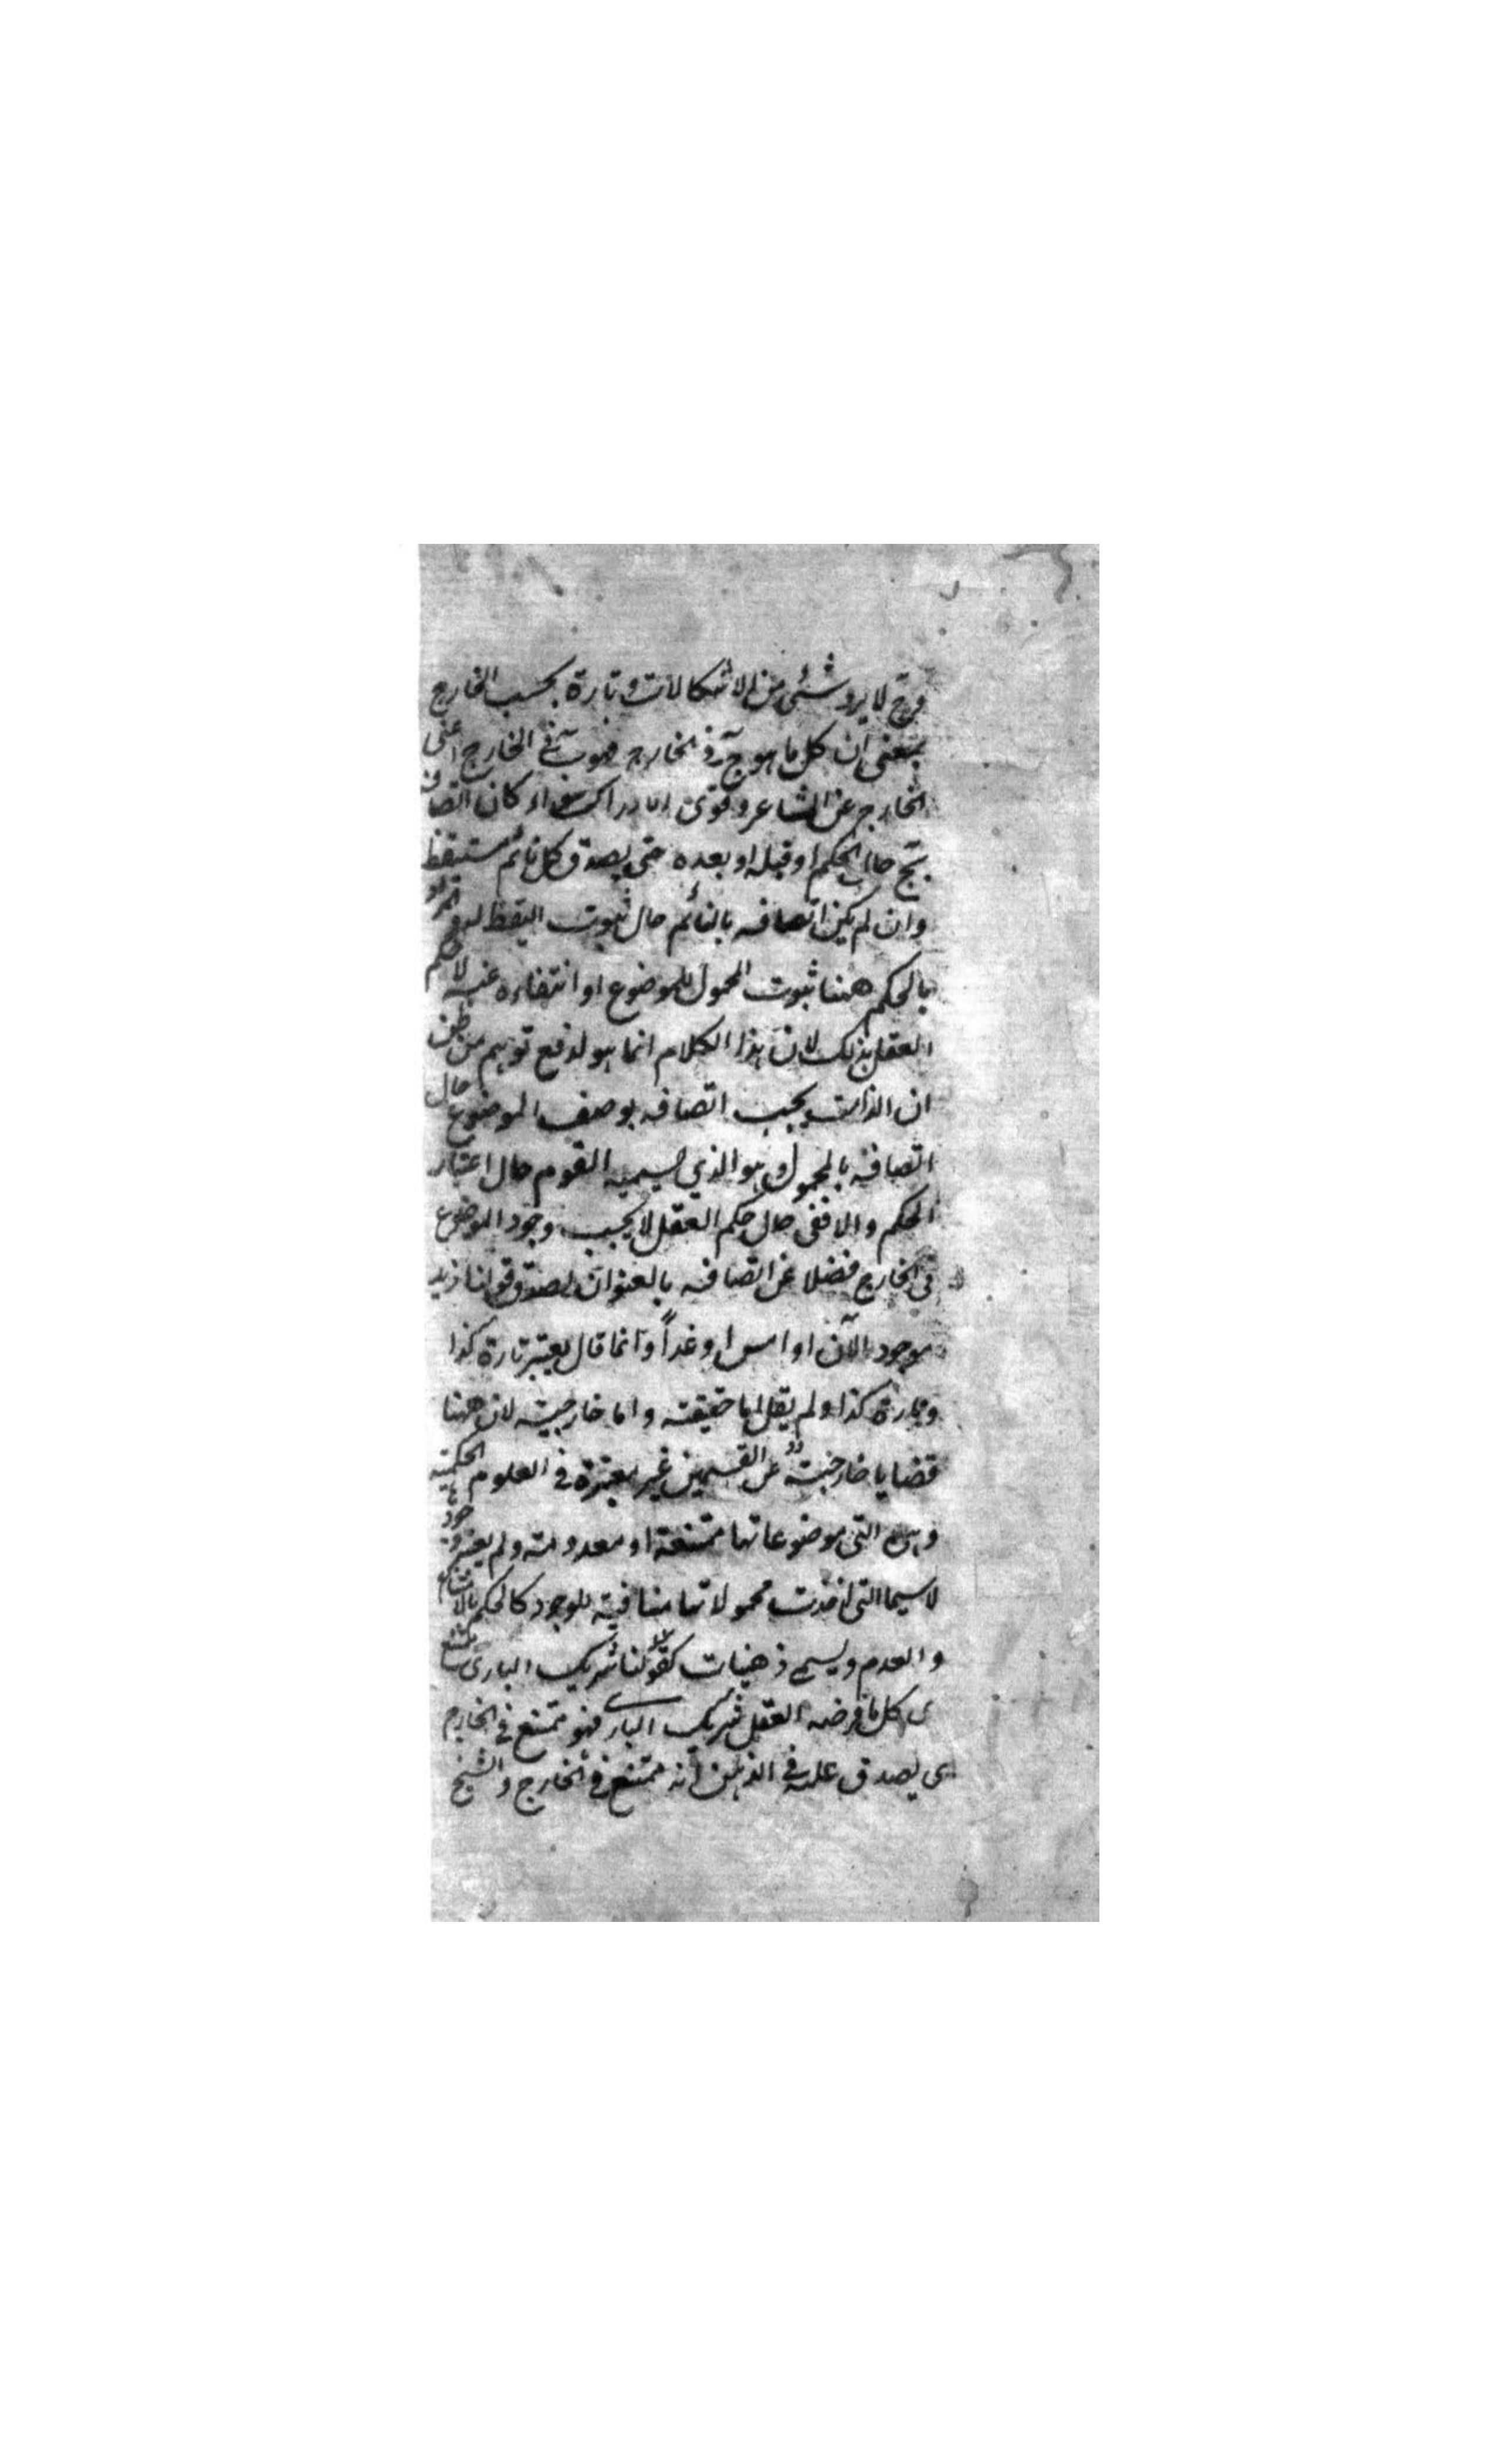 وح لا يرد شئ من الاشكالات وتارة بحسب الخارج
بمعنى ان كل ما هو ج فى الخارج فهو ب فى الخارج اعنى
الخارج عن المشاعر وقوى الادراك سواء كان اتصافه
بج حال الحكم او قبله او بعده حتى يصدق كل نائم مستيقظ
وان لم يكن اتصافه بالنائم حال ثبوت اليقظ له والمراد
بالحكم ههنا ثبوت المحمول للموضوع او انتفاءه عنه لا حكم
العقل بذلك لان هذا الكلام انما هو لدفع توهم من ظن
ان الذات يجب اتصافه بوصف الموضوع حال
اتصافه بالمحمول وهو الذي يسميه القوم حال اعتبار
الحكم والا ففى حال حكم العقل لا يجب وجود الموضوع
فى الخارج فضلا عن اتصافه بالعنوان لصدق قولنا زيد
موجود الآن او امس او غداً وانما قال يعتبر تارة كذا
وتارة كذا ولم يقل اما حقيقته واما خارجية لان ههنا
قضايا خارجية عن القسمين غير معتبرة فى العلوم الحكمية
وهى التى موضوعاتها ممتنعة او معدومة ولم يعتبر
لا سيما التى اخذت محمولاتها منافية للوجود كالحكم بالامتناع
والعدم ويسمى ذهنيات كقولنا شريك البارى ممتنع
اى كل ما فرضه العقل شريك البارى فهو ممتنع فى الخارج
اى يصدق عليه فى الذهن انه ممتنع فى الخارج والشيخ